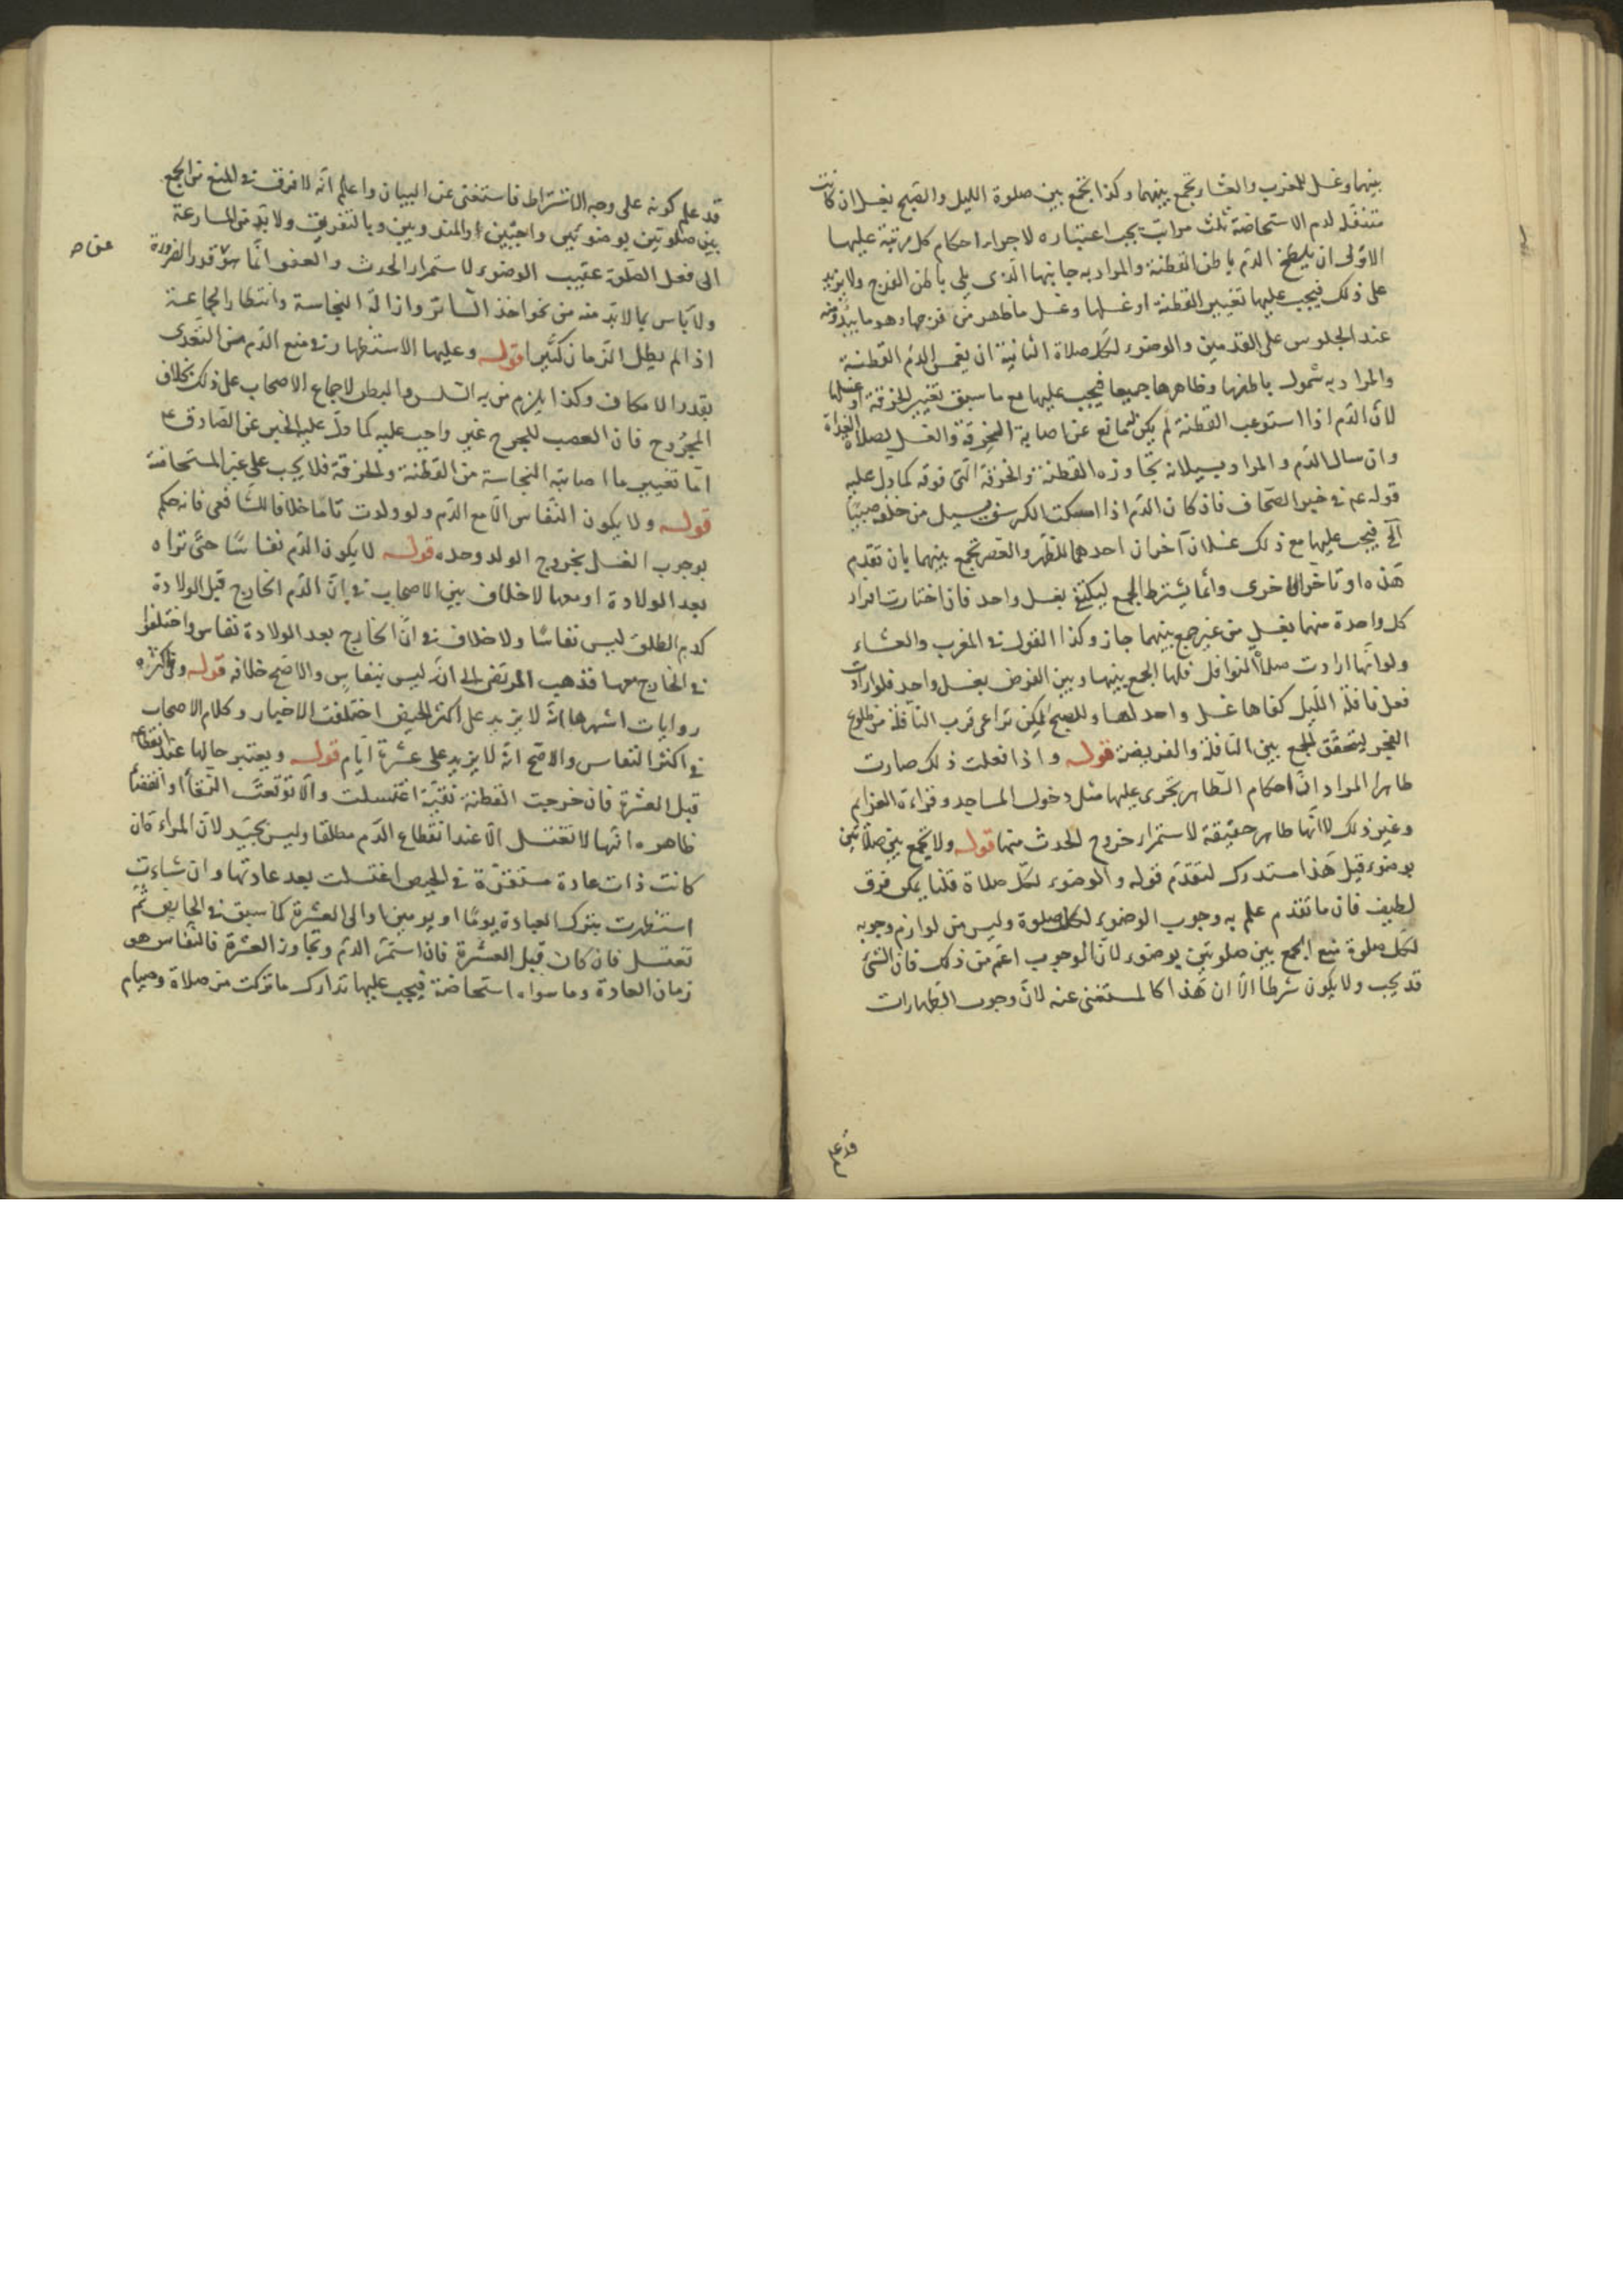 بينهما وغسل للمغرب والعشاء تجمع بينهما وكذا تجمع بين صلوة الليل والصبح بغسل ان كانت
متنفلة لدم الاستحاضة ثلث مراتب يجب اعتباره لاجراء احكام كل مرتبة عليها
الاولى ان يلطخ الدم باطن القطنة والمراد به جانبها الذى يلى باطن الفرج ولا يزيد
على ذلك فيجب عليها تغيير القطنة او غسلها وغسل ما ظهر من فرجها وهو ما يبدو منه
عند الجلوس على القدمين والوضوء لكل صلاة الثانية ان يغمس الدم القطنة
والمراد به شمول باطنها وظاهرها جميعا فيجب عليها مع ما سبق تغيير الخرقة او غسلها
لان الدم اذا استوعب القطنة لم يكن مانع عن اصابة الخرقة والغسل لصلاة الغداة
وان سال الدم والمراد بسيلانه تجاوزه القطنة والخرقة التى فوقه كما دل عليه
قوله عم فى خبر الصحاف فاذ كان الدم اذا امسكت الكرسف يسيل من خلفه صبيبا
الخ فيجب عليها مع ذلك غسلان آخران احدهما للظهر والعصر تجمع بينهما بان تقدم
هذه او تأخر الاخرى وانما يشترط الجمع ليكتفى بغسل واحد فان اختارت افراد
كل واحدة منهما بغسل من غير جمع بينهما جاز وكذا القول فى المغرب والعشاء
ولو انها ارادت صلاة النوافل فلها الجمع بينها وبين الفرض بغسل واحد فلو ارادت
فعل نافلة الليل كفاها غسل واحد لها وللصبح لكن تراعى قرب النافلة من طلوع
الفجر ليتحقق الجمع بين النافلة والفريضة قوله واذا فعلت ذلك صارت
طاهرا المراد ان احكام الطاهر تجرى عليها مثل دخول المساجد وقراءة العزايم
وغير ذلك لا انها طاهر حقيقة لاستمرار خروج الحدث منها قوله ولا تجمع بين صلاتين
بوضوء قيل هذا مستدرك لتقدم قوله والوضوء لكل صلاة قلنا يمكن فرق
لطيف فان ما تقدم علم به وجوب الوضوء لكل صلوة وليس من لوازم وجوبه
لكل صلوة منع الجمع بين صلوتين بوضوء لان الوجوب اعم من ذلك فان الشئ
قد يجب ولا يكون شرطا الا ان هذا كالمستغنى عنه لان وجوب الطهارات
قد علم
قد علم كونه على وجه الاشتراط فاستغنى عن البيان واعلم انه لا فرق فى المنع من الجمع
بين صلوتين بوضوء بين واجبتين او المندوبين وبالتفريق ولا بد من المسارعة
الى فعل الصلوة عقيب الوضوء لاستمرار الحدث والعفو انما هو قدر الضرورة
ولا بأس بما لا بد منه من نحو اخذ الساتر وازالة النجاسة وانتظار الجماعة
اذا لم يطل الزمان كثيرا قوله وعليها الاستظهار فى منع الدم من التعدى
بقدر الامكان وكذا يلزم من به السلس والبطن لاجماع الاصحاب على ذلك بخلاف
المجروح فان العصب للجرح غير واجب عليه كما دل عليه الخبر عن الصادق ع
اما تغيير ما اصابته النجاسة من القطنة والخرقة فلا يجب على غير المستحاضة
قوله ولا يكون النفاس الا مع الدم ولو ولدت تاما خلافا للشافعى فانه حكم
بوجوب الغسل بخروج الولد وحده قوله لا يكون الدم نفاسا حتى تراه
بعد الولادة او معها لا خلاف بين الاصحاب فى ان الدم الخارج قبل الولادة
كدم الطلق ليس نفاسا ولا خلاف فى ان الخارج بعد الولادة نفاس واختلفوا
فى الخارج معها فذهب المرتضى الى انه ليس بنفاس والاصح خلافه قوله وفى اكثره
روايات اشهرها انه لا يزيد على اكثر الحيض اختلفت الاخبار وكلام الاصحاب
فى اكثر النفاس والاصح انه لا يزيد على عشرة ايام قوله ويعتبر حالها عند انقطاعه
قبل العشرة فان خرجت القطنة نقية اغتسلت والا توقعت النقاء او انقضاء
ظاهره انها لا تغتسل الا عند انقطاع الدم مطلقا وليس بجيد لان المراة ان
كانت ذات عادة مستقرة فى الحيض اغتسلت بعد عادتها وان شاءت
استظهرت بترك العبادة يوما او يومين او الى العشرة كما سبق فى الحايض ثم
تغتسل فان كان قبل العشرة فان استمر الدم وتجاوز العشرة فالنفاس هو
زمان العادة وما سواه استحاضة فيجب عليها تدارك ما تركت من صلاة وصيام